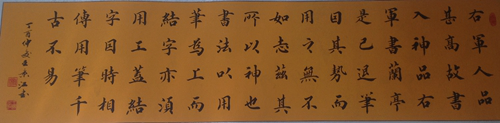 右軍人品
甚高故書
入神品右
軍書蘭亭
是已退筆
因其勢而
用之無不
如志茲其
所以神也
書法以用
筆為工而
結字亦須
用工蓋結
字因時相
傳用筆千
古不易
丁酉仲